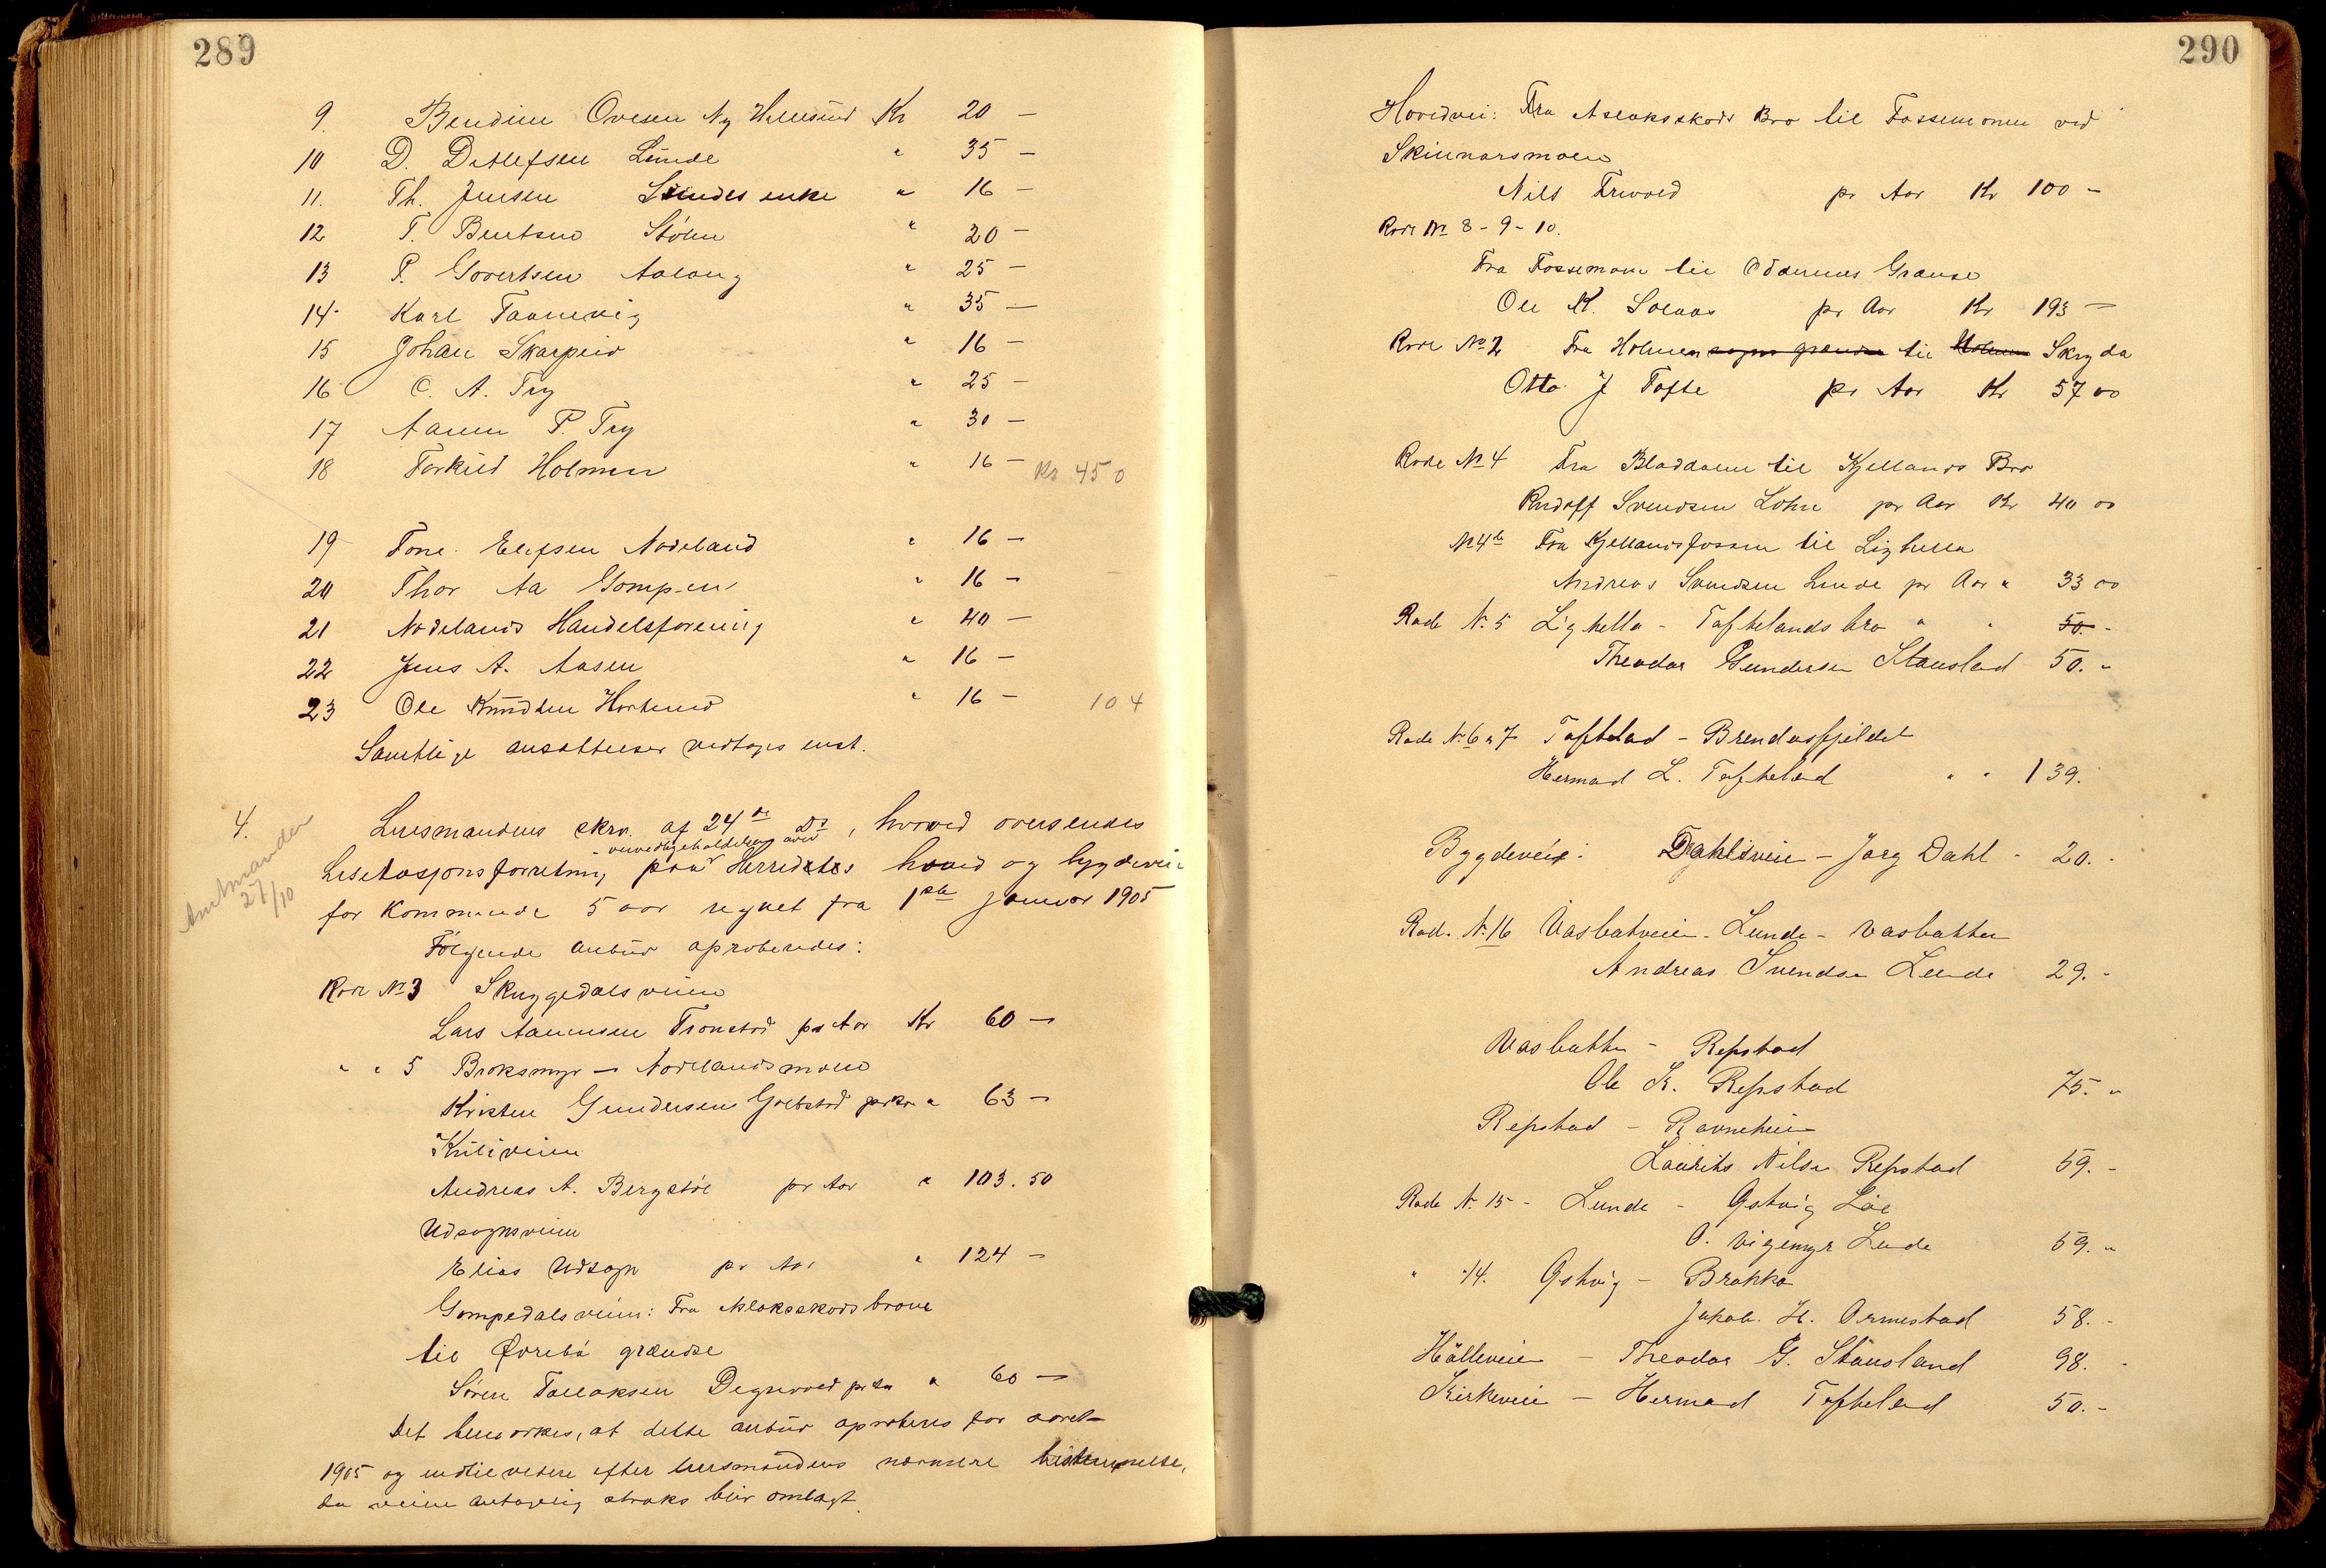 289
9. Bendine Ovesen Ny Hellesund Kr 20 —
10 D. Ditlefsen Lunde " 35 —
11. Th. Jensen Lundes enke " 16 —
12 T. Bentsen Støln " 20 —
13 P. Govertsen Aalang " 25 —
14 Karl Taanevig " 35 —
15 Johan Skarpeid " 16 —
16 C. A. Try " 25 —
17 Aanen P. Try " 30 —
18 Torkild Holmen " 16 — Kr 450
19 Tone Elefsen Nodeland " 16 —
20 Thor Aa Gompen " 16 —
21 Nodelands Handelsforening " 40 —
22 Jens A. Aasen " 16 —
23 Ole Knudsen Hortemo " 16 — 104
Samtlige ansættelser vedtages enst.
4. Lensmandens skrv. af 24de Ds, hvorved oversendes
Amtmanden 27/10
vedligeholdelsen over
Lisitasjonsforretning paa Herredets hoved og bygdeveie
for kommende 5 aar regnet fra 1ste januar 1905
Følgende anbud aproberedes:
Rode No 3 Skuggedalsveien
Lars Aanensen Tronstad pr Aar Kr 60 —
" " 5 Broksmyr — Nodelandsmoen
Kristen Gundersen pr Aar " 63 —
Kuliveien
Andreas A. Bergstøl pr Aar " 103.50
Udsognsveien
Elias Udsogn pr Aar " 124 —
Gompedalsveien: Fra Aslaksskods brone
til Øvrebø grændse
Søren Tallaksen Degrevold pr Aar " 60 —
Det bemærkes, at dette anbud aproberes for aaret
1905 og indtil videre efter lensmandens nærmere bestemmelse,
da veien antagelig straks blir omlagt.
290
Hovedvei: Fra Aslaksskods Bro til Fossemoen ved
Skinnarsmoen
Nils Trivold pr Aar Kr 100 —
Rode No 8 - 9 - 10.
Fra Fossemoen til Oddernes Grænse
Ole K. Solaas pr Aar Kr 193 —
Rode No 2 Fra Holmen sogns grændse til Holmen Skryda
Otto J Tofte pr Aar Kr 57 00
Rode No 4 Fra Bladdalen til Kjellands Bro
Rudolf Svendsen Lohne pr Aar Kr 40 00
No 4b Fra Kjellandsfossen til Lighella
Andreas Svendsen Lunde pr Aar " 33 00
Rode N. 5 Lighella - Taftelands bro " " 50. -
Theodor Gundersen Stausland 50. "
Rode N. 6 & 7 Tafteland - Brendasfjeldet
Hermod L. Tafteland " " 139.
Bygdeveie: Dahlsveien - Jørg Dahl - 20. -
Rod. N. 16 Vasbakveien - Lunde - Vasbakken
Andreas Svendsen Lunde 29. -
Vasbakken - Repstad
Ole K. Repstad 75. "
Repstad - Ravneheien
Lauritz Nilsen Repstad 59. -
Rode N. 15 - Lunde - Gstvig
O. Vigemyr Lunde 59. "
" 14. Gstvig - Brokka
Jakob H. Ormestad 58. -
Hälleveien - Theodor G. Stausland 98. -
Kirkeveien - Hermod Tafteland 50. -